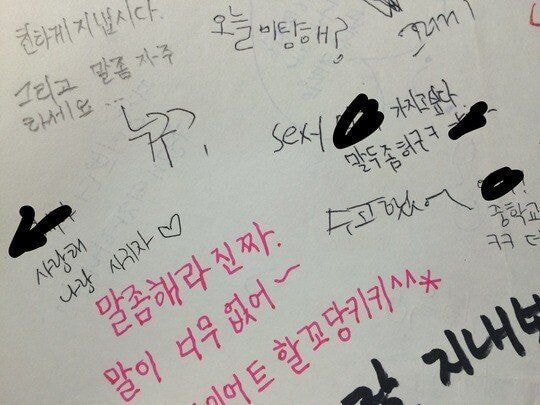 친하게 지냅시다.
그리고 말좀 자주
하세요...
오늘 미탕해?
뉴규?,
sex시
가지고싶다
말두좀하구ㅋ
수고했어
중학교
ㅋㅋ
사랑해
나랑 사귀자♡
말좀해라 진짜.
말이 너무 없어~
이어트 할꼬당키키^^*
잘 지내보